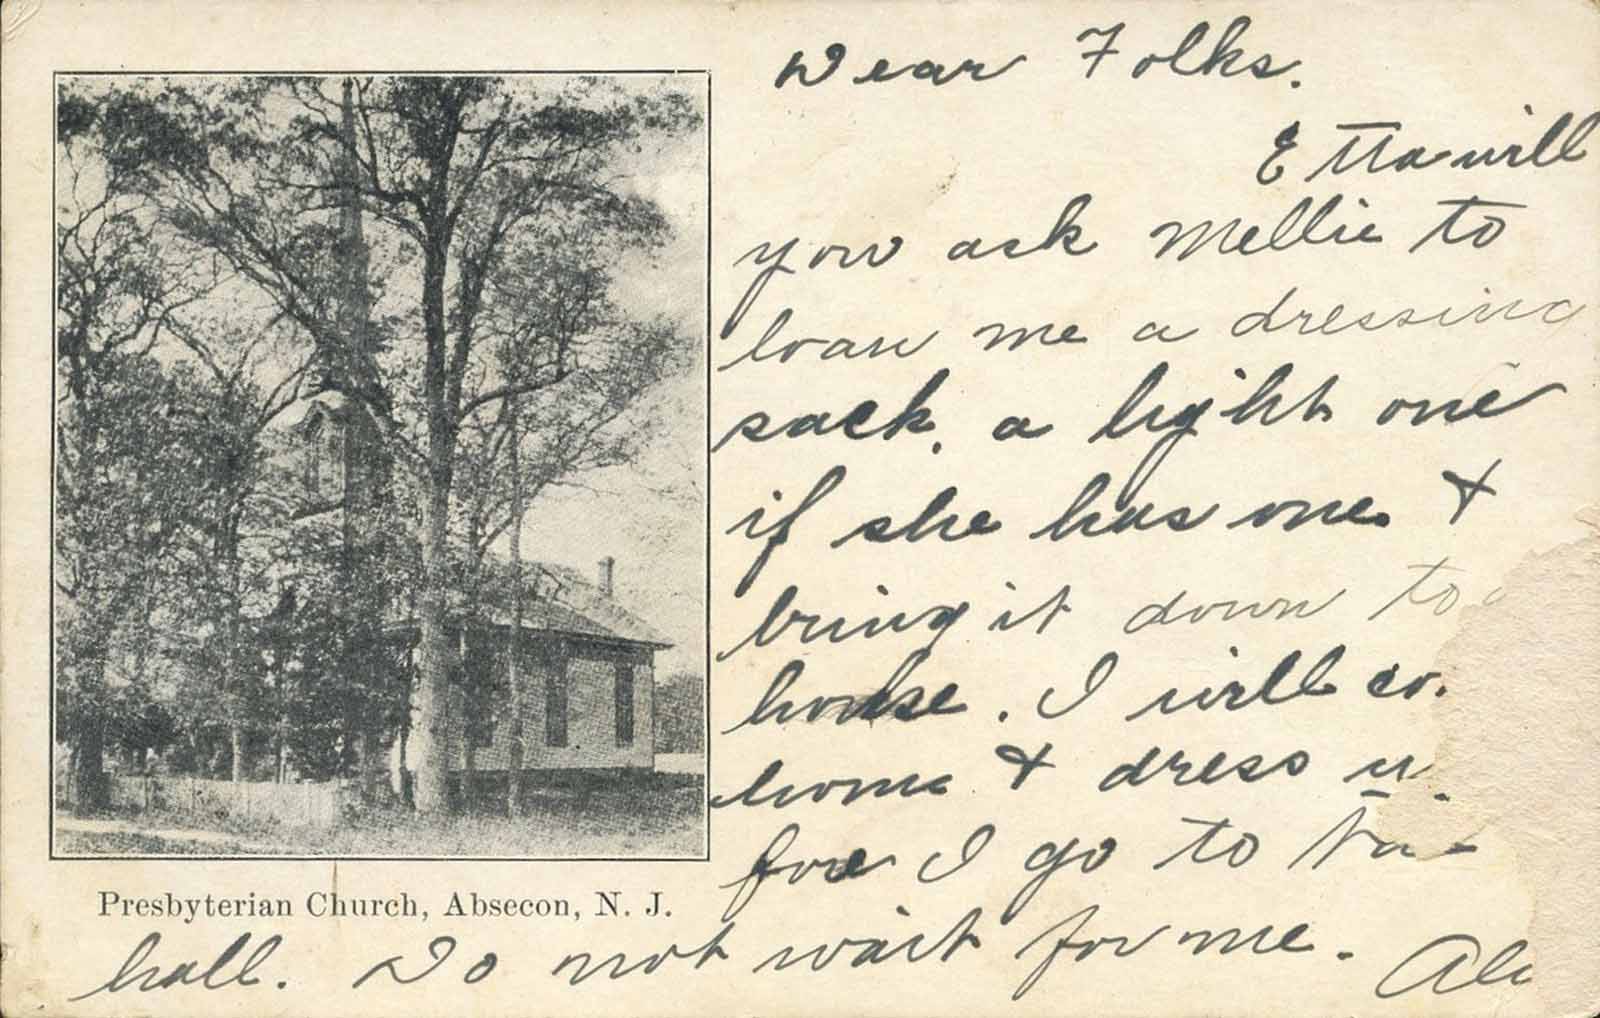 Dear Folks.
Etta will
you ask Mellie to
loan me a dressing
sack, a light one
if she has one &
bring it down to
house. I will co
home & dress u
fore I go to
Presbyterian Church, Absecon, N. J.
hall. Do not wait for me.